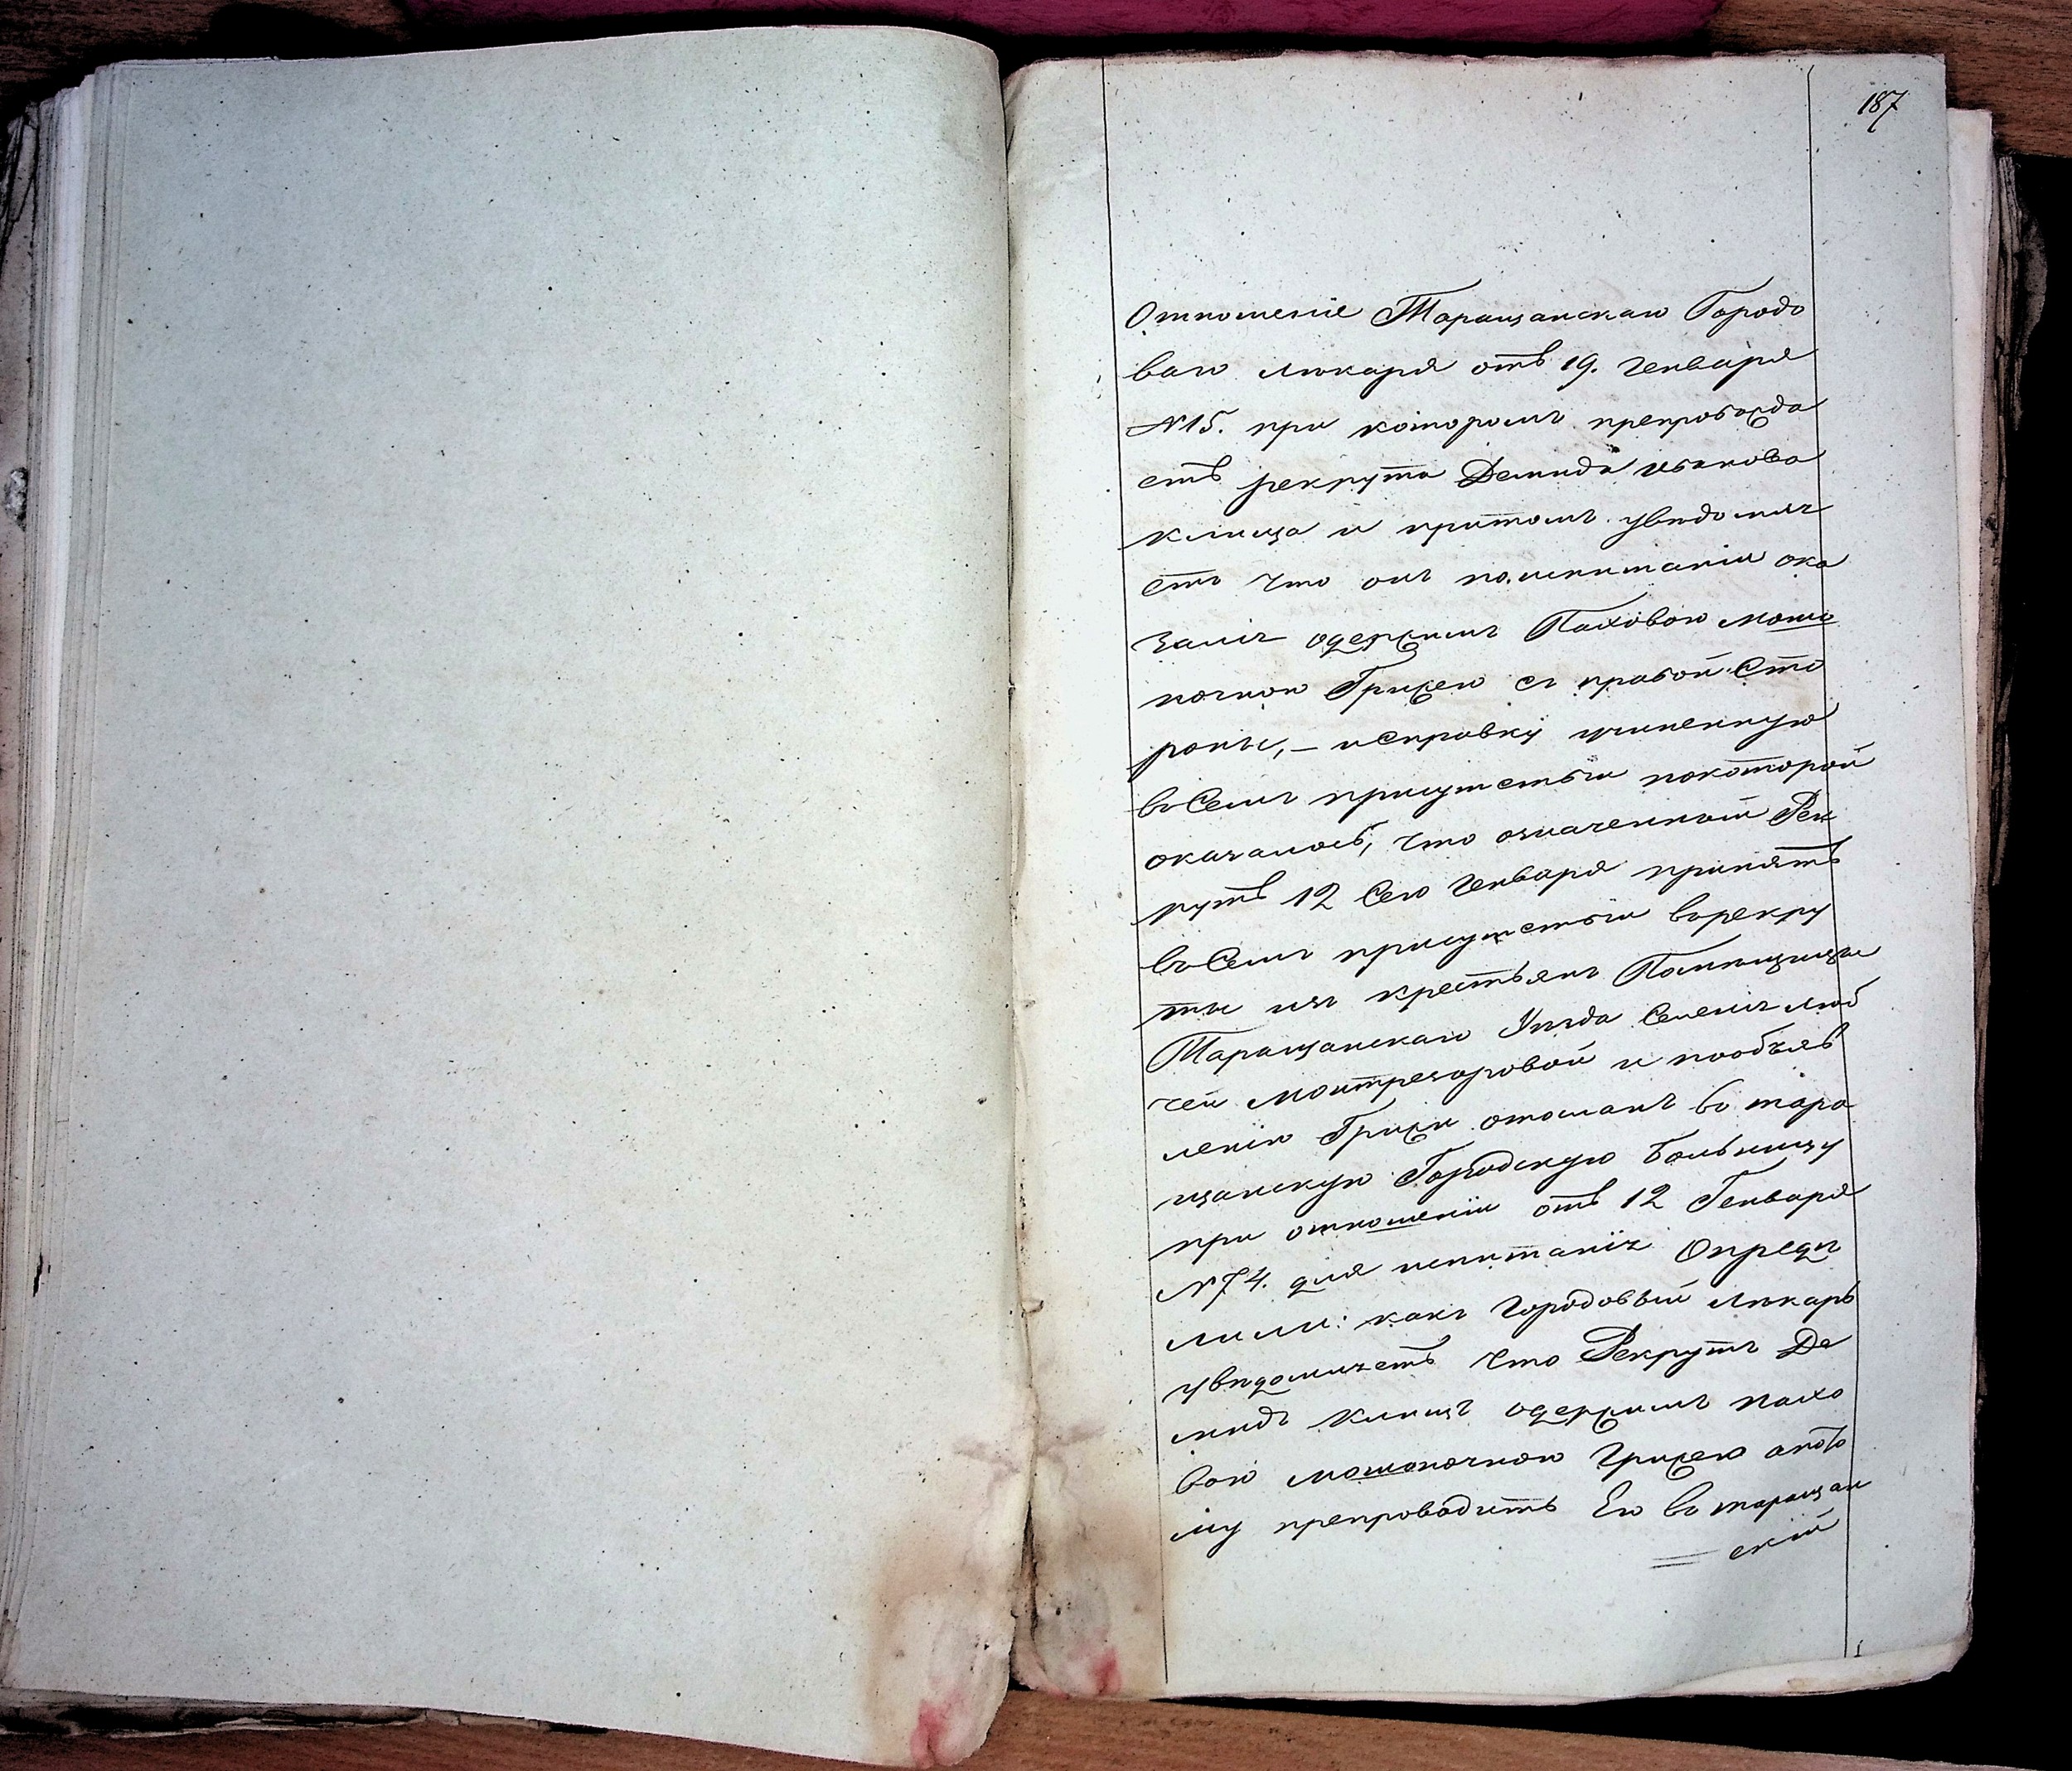 187
Отношеніе Таращанскаго Городо
ваго лѣкаря отъ 19. генваря
№ 15. при которомъ препровожда
етъ рекрута Демида Иванова
клища и притомъ уведомля
етъ что онъ поиспитаніи ока
зался одержимъ Паховою мошо
ночною Грижею съ правой Сто
роны, — исправку учиненную
въ Семъ присутствіи покоторой
оказалось, что означенный Рек
рутъ 12 Сего генваря принятъ
въ Семъ присутствіи врекру
ты изъ крестьянъ Помещицы
Таращанскаго Уезда Семелю
чей Монтрезоровой и пообъяв
ленію Грижи отосланъ въ тара
щанскую Городскую Больницу
при отношеніи отъ 12 Генваря
№ 74. для испитанія Опреде
лили: какъ городовый лѣкарь
уведомляетъ что Рекрутъ Де
мидъ Клищъ одержимъ пахо
вою мошоночною грижею апото
му препроводить Его въ таращан
скій